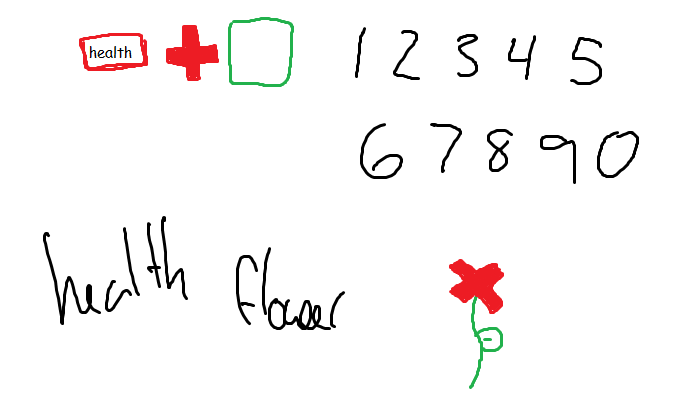 health 1 2 3 4 5
6 7 8 9 0
health flower